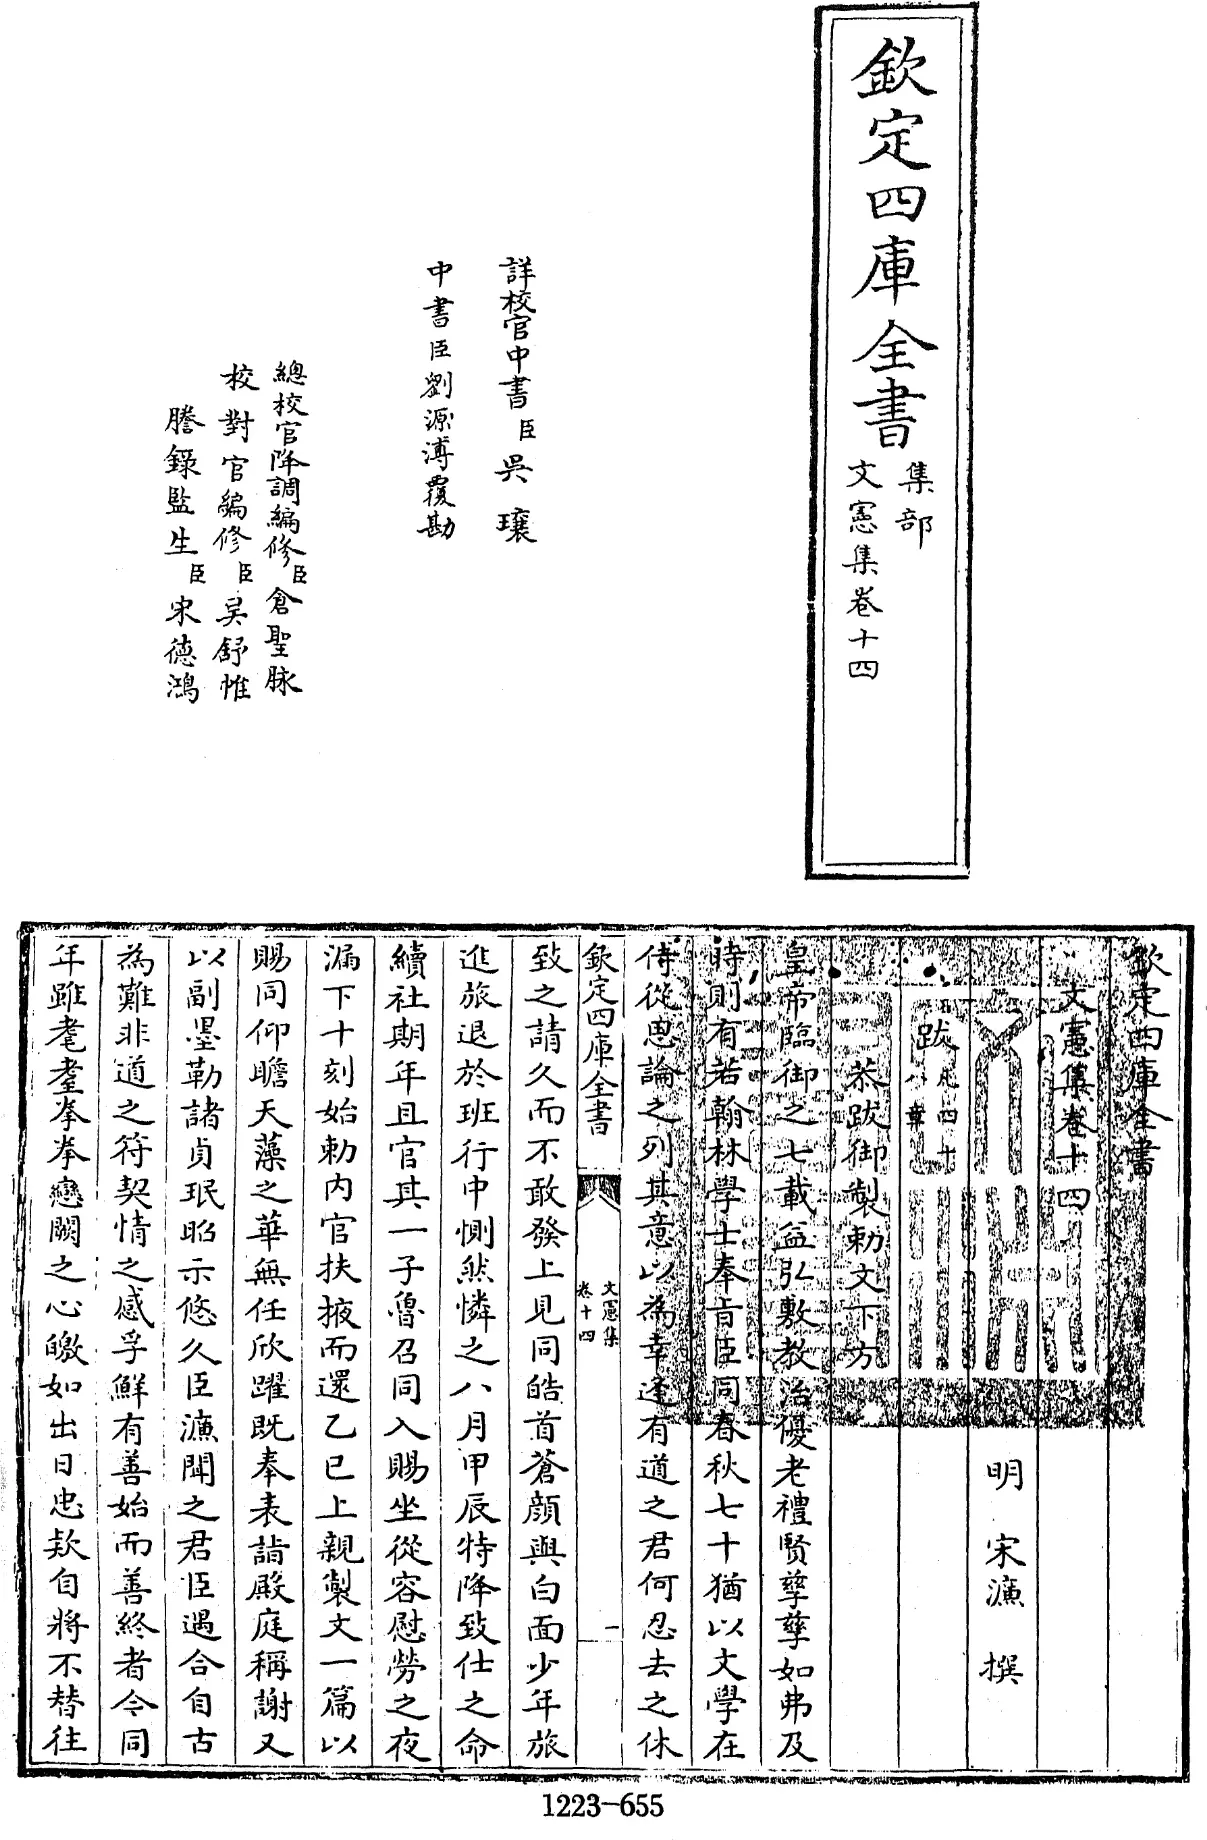 欽定四庫全書
集部
文憲集卷十四
詳校官中書臣吳瓖
中書臣劉源溥覆勘
總校官降調編修臣倉聖脉
校對官編修臣吳舒惟
謄錄監生臣宋德鴻
欽定四庫全書
文憲集卷十四
明 宋濂 撰
跋凡四十八章
恭跋御製勅文下方
皇帝臨御之七載益弘敷教治優老禮賢孳孳如弗及
時則有若翰林學士奉旨臣同春秋七十猶以文學在
侍從思論之列其意以為幸逢有道之君何忍去之休
欽定四庫全書
文憲集
卷十四
一
致之請久而不敢發上見同皓首蒼顔與白面少年旅
進旅退於班行中惻然憐之八月甲辰特降致仕之命
續社期年且官其一子魯召同入賜坐從容慰勞之夜
漏下十刻始勅内官扶掖而還乙巳上親製文一篇以
賜同仰瞻天藻之華無任欣躍既奉表詣殿庭稱謝又
以副墨勒諸貞珉昭示悠久臣濂聞之君臣遇合自古
為難非道之符契情之感孚鮮有善始而善終者今同
年雖耄耋拳拳戀闕之心皦如出日忠欵自將不替往
1223-655